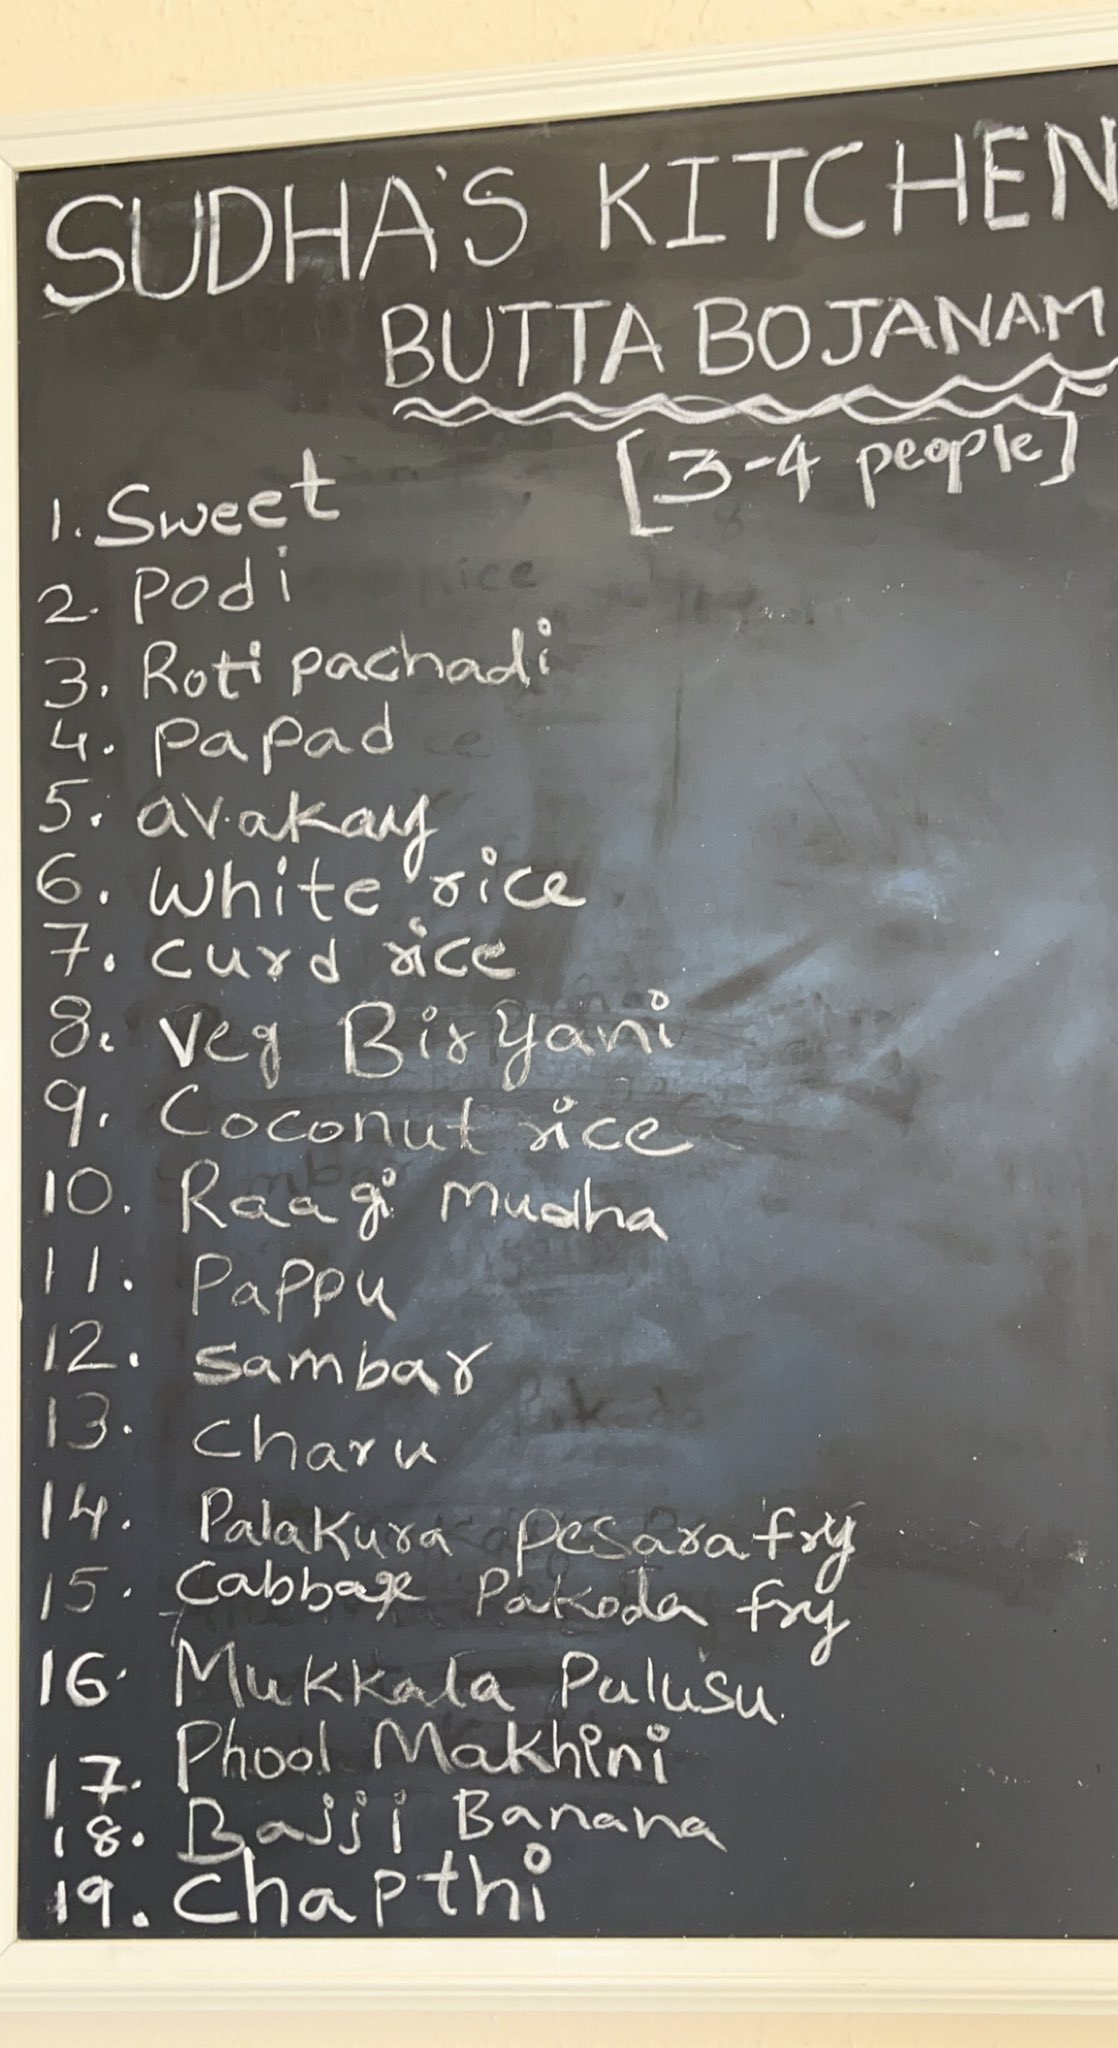 SUDHA'S KITCHEN
BUTTA BOJANAM
[3-4 people]
1. Sweet
2. Podi
3. Roti pachadi
4. Papad
5. avakay
6. White rice
7. Curd rice
8. Veg Biryani
9. Coconut rice
10. Raagi Mudha
11. Pappu
12. Sambar
13. Charu
14. Palakura Pesara fry
15. Cabbage Pakoda fry
16. Mukkala Pulusu
17. Phool Makhini
18. Bajji Banana
19. Chapthi